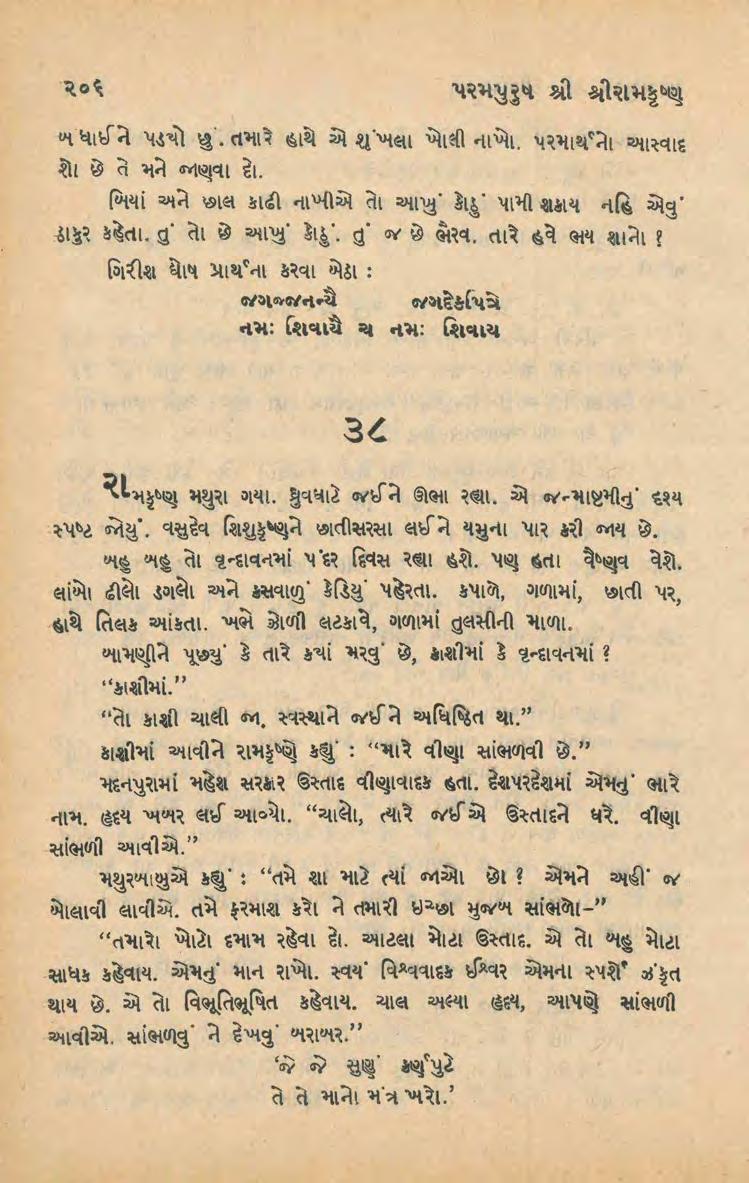 ૨૦૬ પરમપુરુષ શ્રી શ્રીરામકૃષ્ણ
બંધાઈને પડ્યો છું. તમારે હાથે એ શૃંખલા ખોલી નાખો. પરમાર્થનો આસ્વાદ
શો છે તે મને જાણવા દો.
બિયાં અને છાલ કાઢી નાખીએ તો આખું કોઠું પામી શકાય નહિ એવું
ઠાકુર કહેતા. તું તો છે આખું કોઠું. તું જ છે ભૈરવ. તારે હવે ભય શાનો ?
ગિરીશ ઘોષ પ્રાર્થના કરવા બેઠા :
જગજ્જનન્યૈ જગદેકપિત્રે
નમઃ શિવાયૈ ચ નમઃ શિવાય
૩૮
રામકૃષ્ણ મથુરા ગયા. ધ્રુવઘાટે જઈને ઊભા રહ્યા. એ જન્માષ્ટમીનું દૃશ્ય
સ્પષ્ટ જોયું. વસુદેવ શિશુકૃષ્ણને છાતીસરસા લઈને યમુના પાર કરી જાય છે.
બહુ બહુ તો વૃન્દાવનમાં પંદર દિવસ રહ્યા હશે. પણ હતા વૈષ્ણવ વેશે.
લાંબો ઢીલો ડગલો અને કસવાળું કેડિયું પહેરતા. કપાળે, ગળામાં, છાતી પર,
હાથે તિલક આંકતા. ખભે ઝોળી લટકાવે, ગળામાં તુલસીની માળા.
બામણીને પૂછ્યું કે તારે કયાં મરવું છે, કાશીમાં કે વૃન્દાવનમાં ?
“કાશીમાં.”
“તો કાશી ચાલી જા. સ્વસ્થાને જઈને અધિષ્ઠિત થા.”
કાશીમાં આવીને રામકૃષ્ણે કહ્યું : “મારે વીણા સાંભળવી છે.”
મદનપુરામાં મહેશ સરકાર ઉસ્તાદ વીણાવાદક હતા. દેશપરદેશમાં એમનું ભારે
નામ. હૃદય ખબર લઈ આવ્યો. “ચાલો, ત્યારે જઈએ ઉસ્તાદને ઘરે. વીણા
સાંભળી આવીએ.”
મથુરબાબુએ કહ્યું : “તમે શા માટે ત્યાં જાઓ છો ? એમને અહીં જ
બોલાવી લાવીએ. તમે ફરમાશ કરો ને તમારી ઇચ્છા મુજબ સાંભળો–”
“તમારો ખોટો દમામ રહેવા દો. આટલા મોટા ઉસ્તાદ. એ તો બહુ મોટા
સાધક કહેવાય. એમનું માન રાખો. સ્વયં વિશ્વવાદક ઈશ્વર એમના સ્પર્શે ઝંકૃત
થાય છે. એ તો વિભૂતિભૂષિત કહેવાય. ચાલ અલ્યા હૃદય, આપણે સાંભળી
આવીએ. સાંભળવું ને દેખવું બરાબર.”
‘જે જે સુણું કર્ણપુટે
તે તે માનો મંત્ર ખરો.’